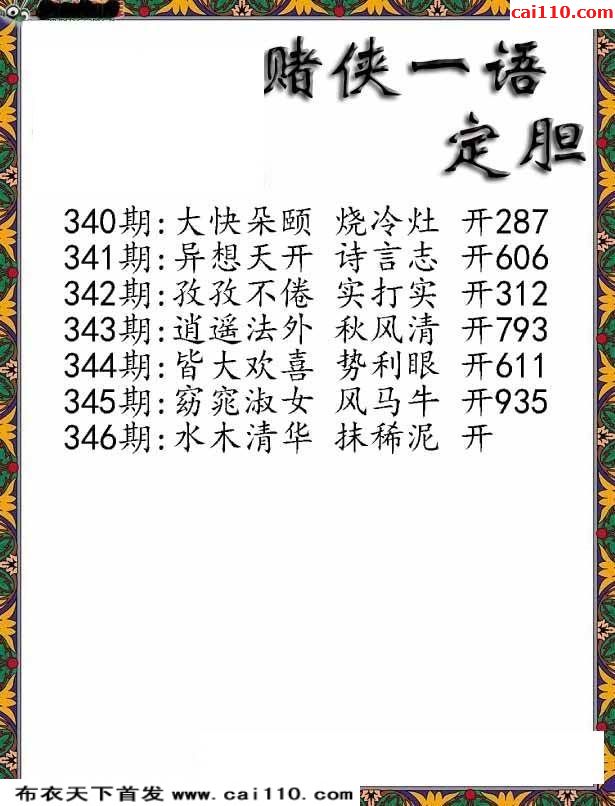 cai110.com
赌侠一语
定胆
340期:大快朵颐 烧冷灶 开287
341期:异想天开 诗言志 开606
342期:孜孜不倦 实打实 开312
343期:逍遥法外 秋风清 开793
344期:皆大欢喜 势利眼 开611
345期:窈窕淑女 风马牛 开935
346期:水木清华 抹稀泥 开
布衣天下首发 www.cai110.com